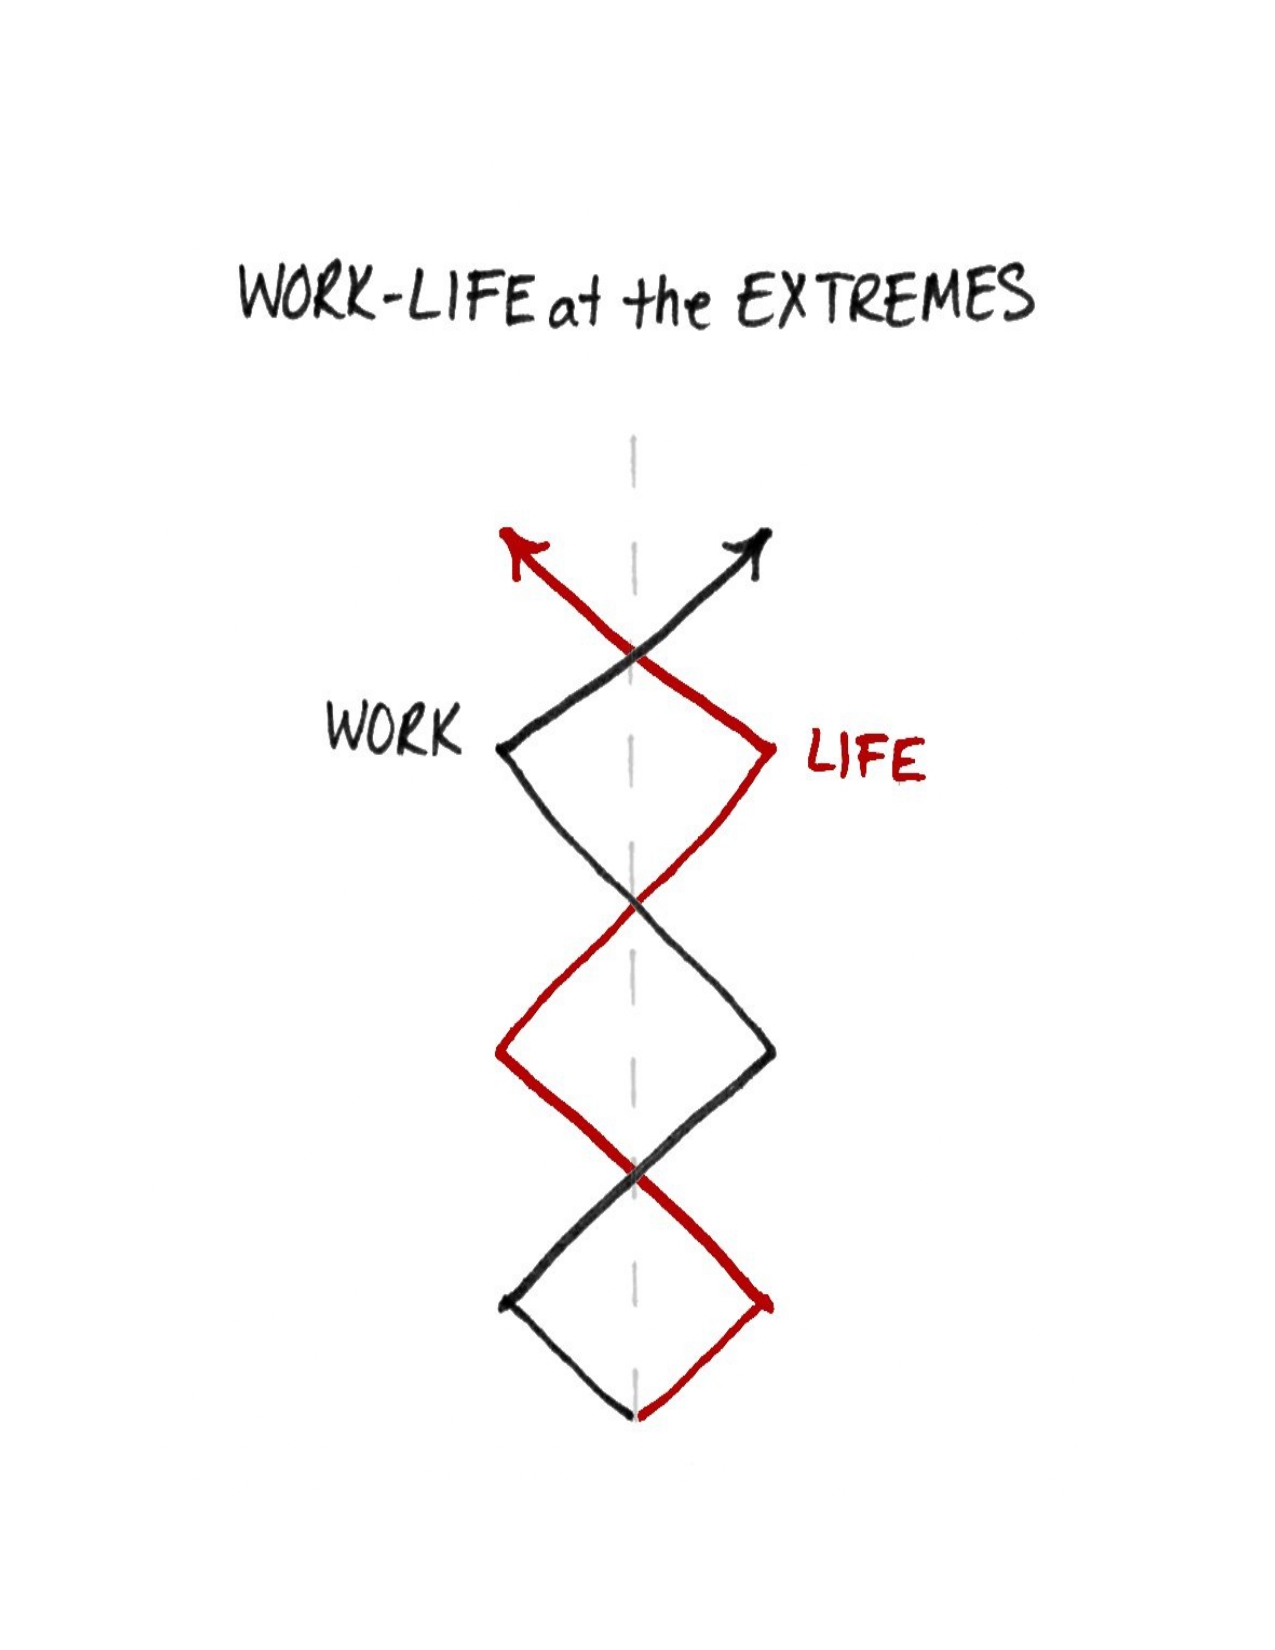 WORK-LIFE at the EXTREMES
WORK
LIFE